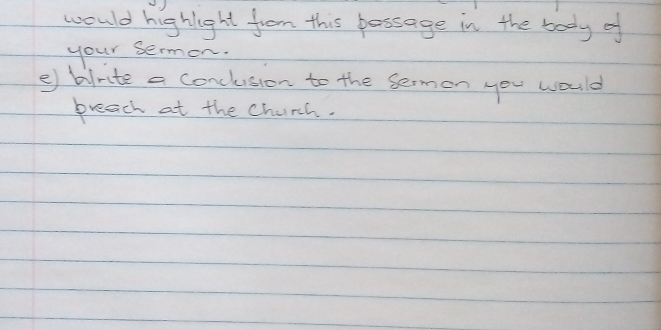 would highlight from this passage in the body of
your sermon.
e) Write a conclusion to the sermon you would
preach at the church.